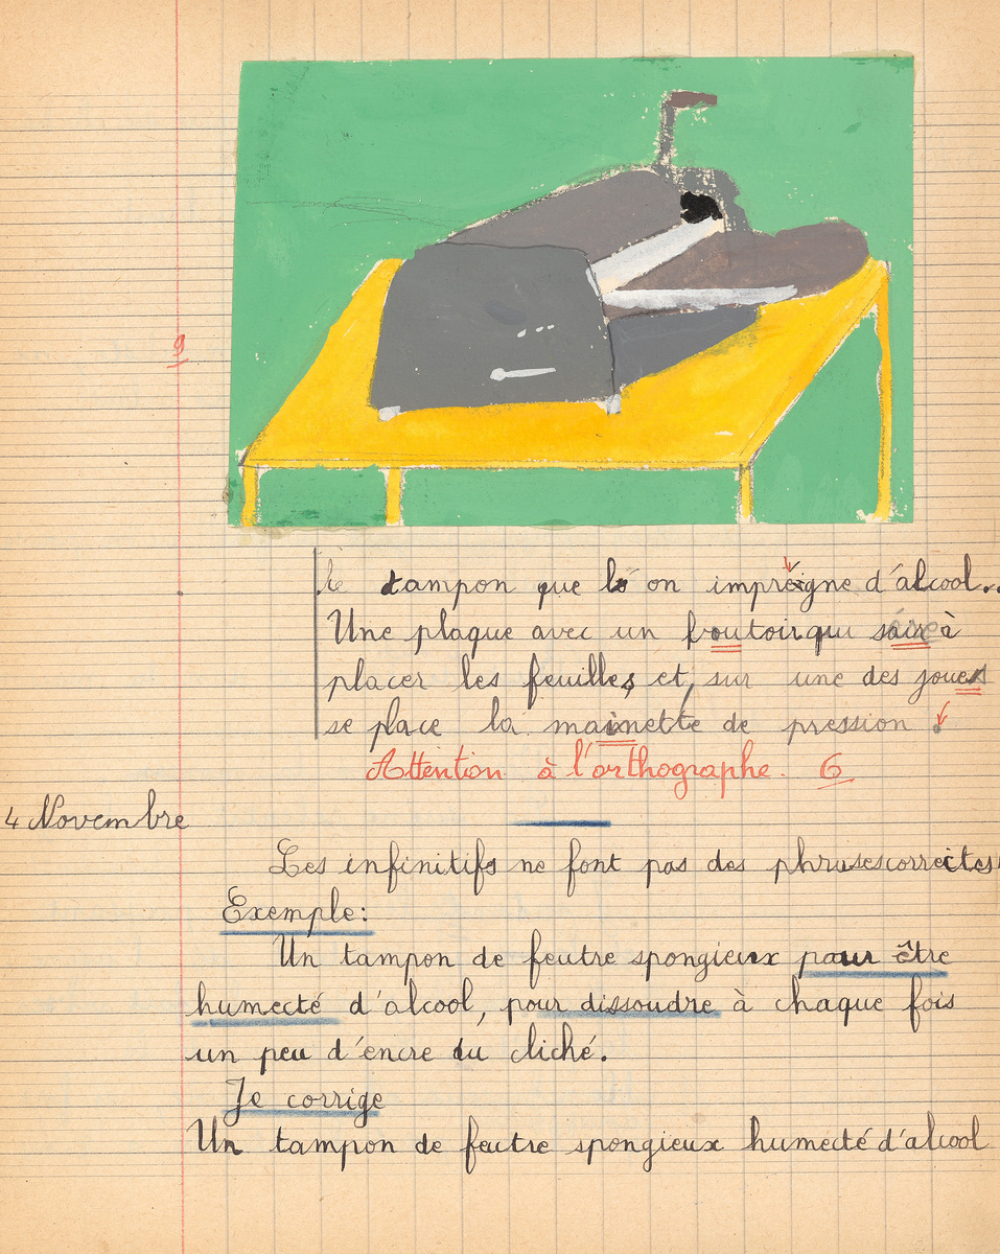 9
le tampon que l'on imprègne d'alcool..
Une plaque avec un boutoir qui à
placer les feuilles, et, sur une des joues
se place la mainette de pression.
Attention à l'orthographe. 6
4 Novembre
Les infinitifs ne font pas des phrases correctes
Exemple:
Un tampon de feutre spongieux pour être
humecté d'alcool, pour dissoudre à chaque fois
un peu d'encre du cliché.
Je corrige
Un tampon de feutre spongieux humecté d'alcool